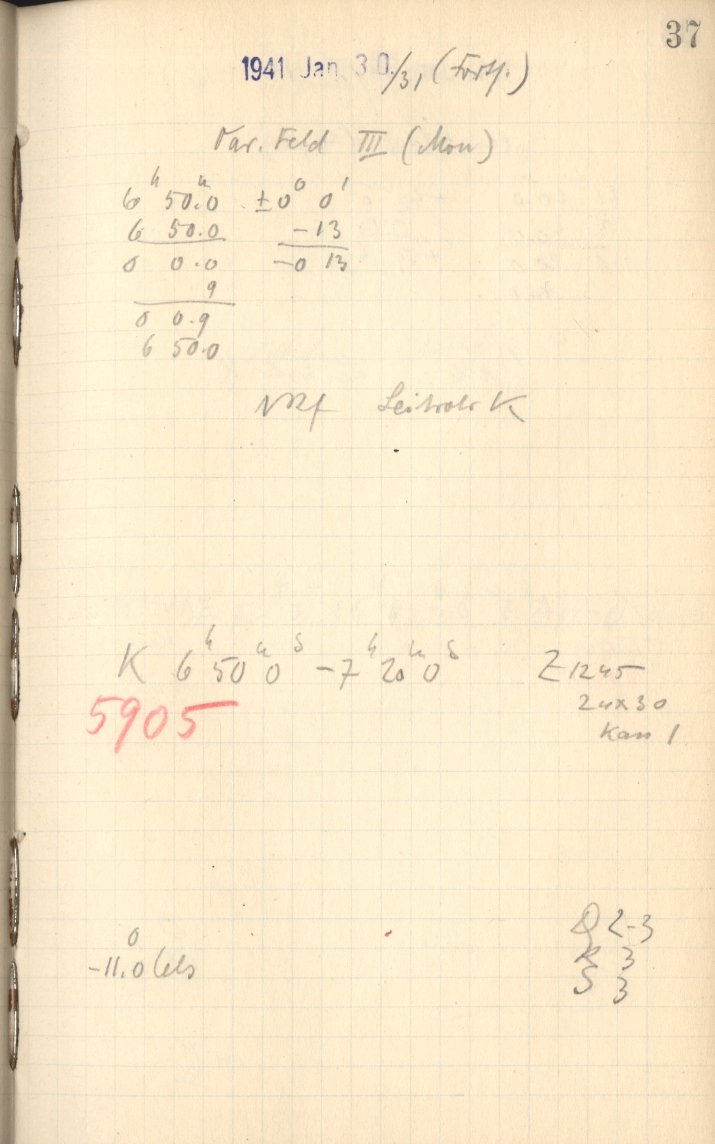 37
1941 Jan. 30./31, (Forts.)
Var. Feld III (Mon)
6ʰ 50.ᵐ0 ±0° 0'
6 50.0 -13
0 0.0 -0 13
9
0 0.9
6 50.0
Leitrohr K
K 6ʰ50ᵐ0ˢ - 7ʰ20ᵐ0ˢ Z 1245
5905 24x30
Kass 1
-11.°0 Cels
2-3
R 3
S 3